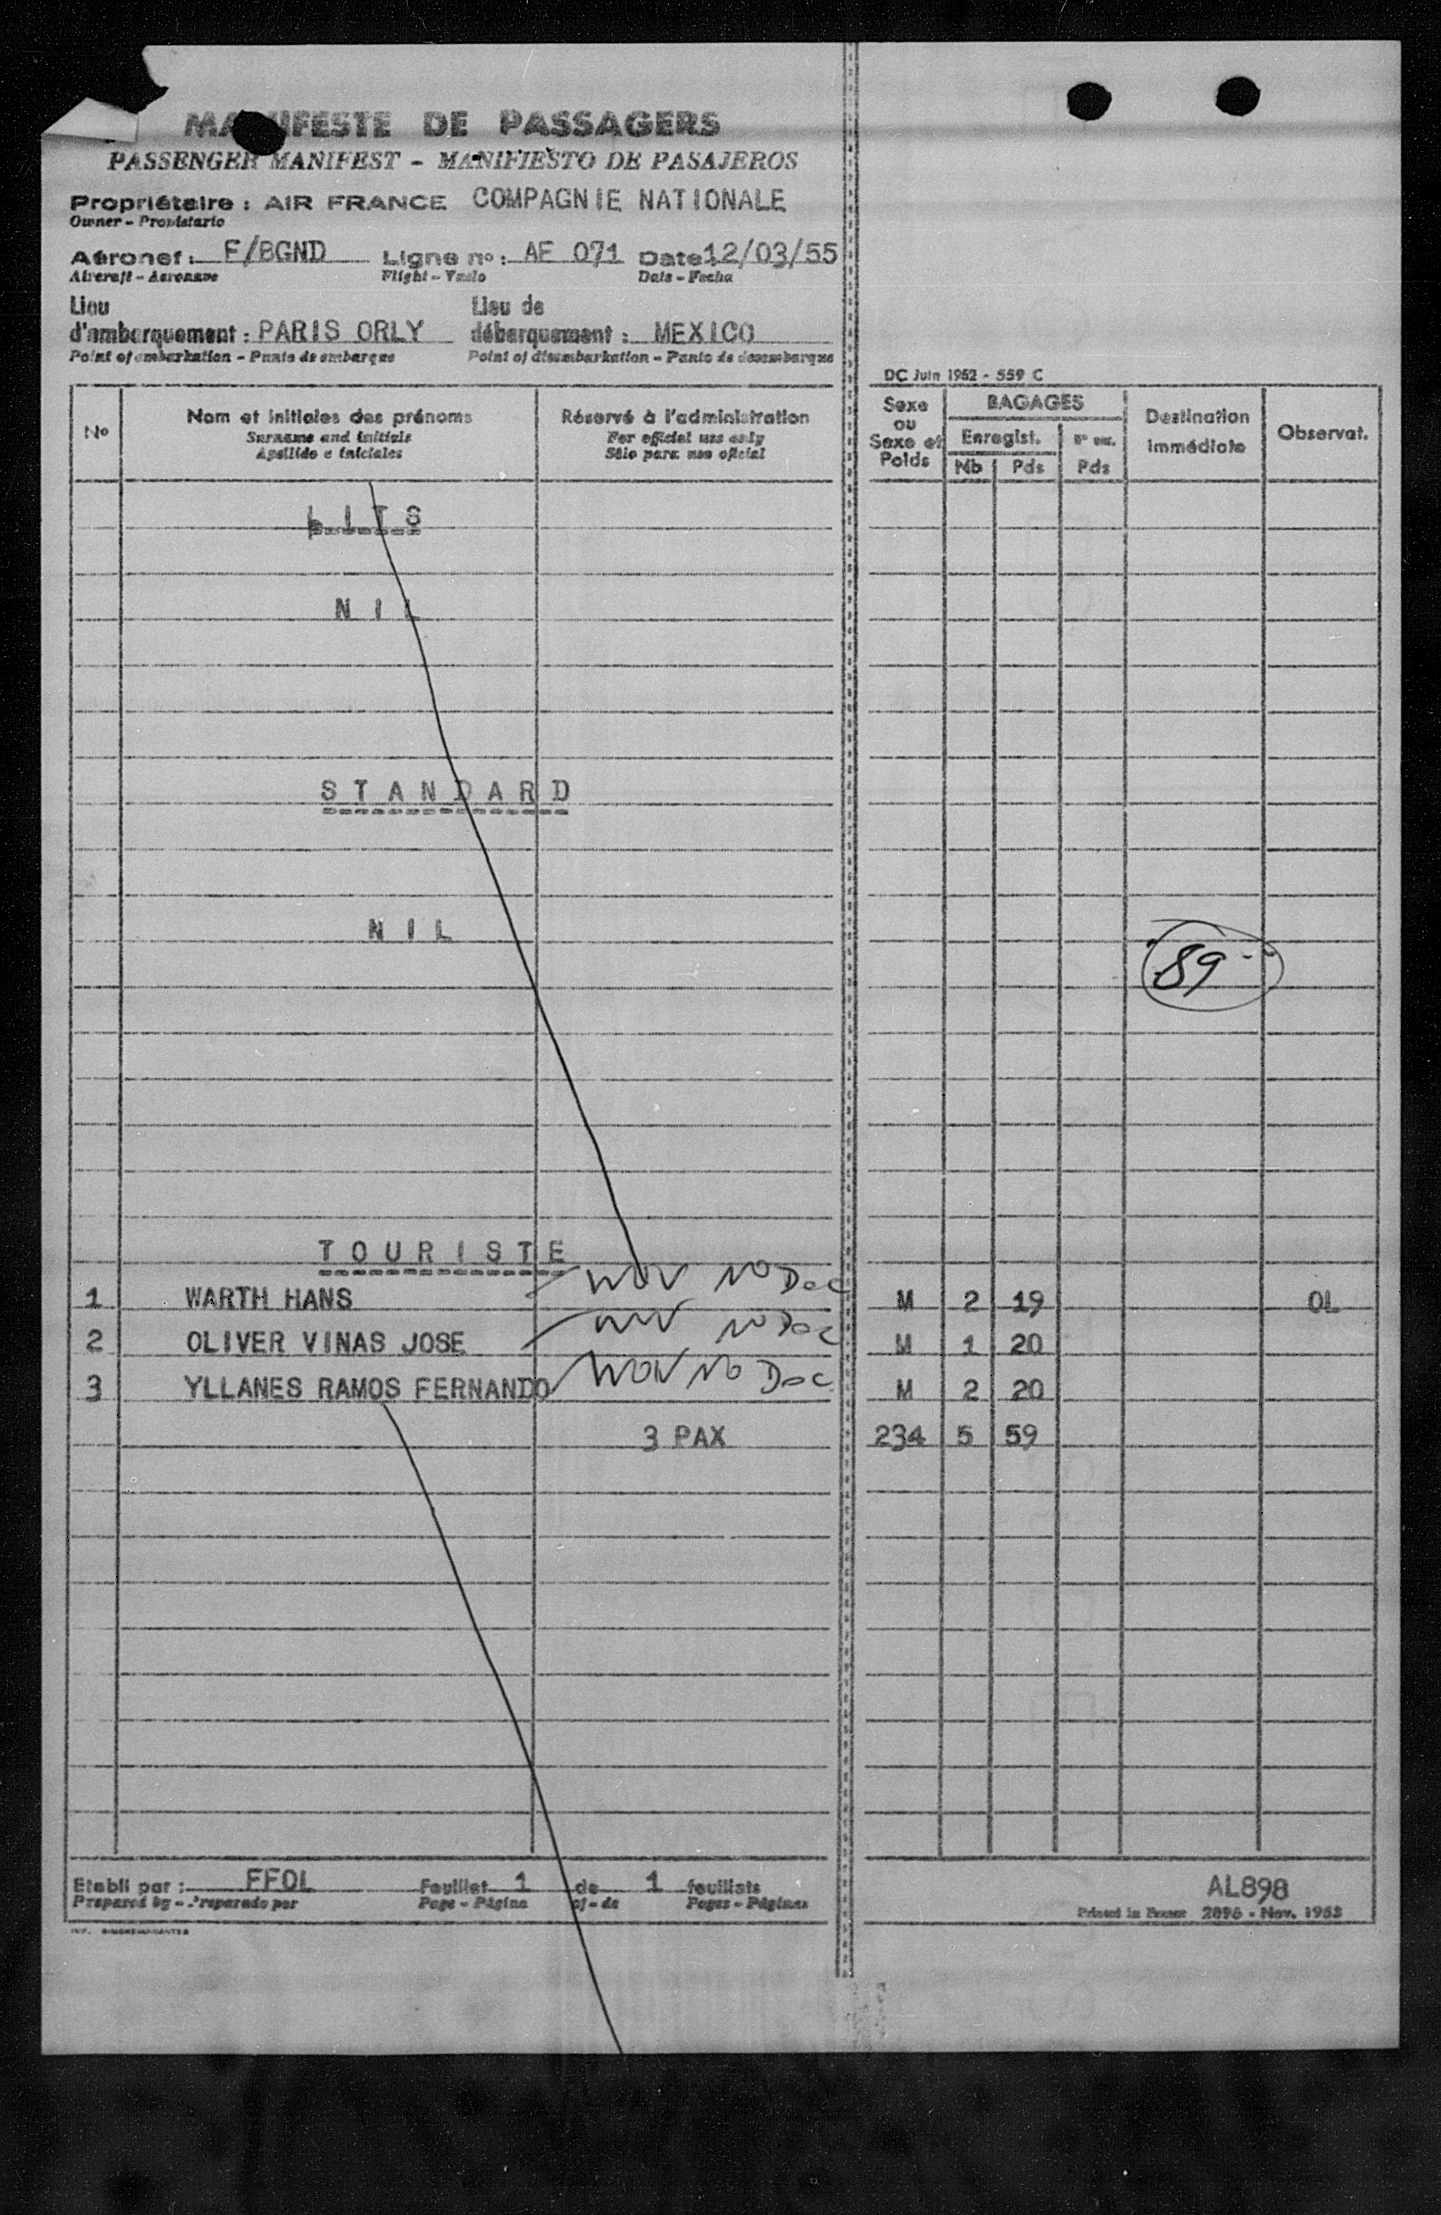 MANIFESTE DE PASSAGERS
PASSENGER MANIFEST - MANIFIESTO DE PASAJEROS
Propriétaire : AIR FRANCE COMPAGNIE NATIONALE
Owner - Propietario
Aéronef : F/BGND Ligne no : AF 071 Date 12/03/55
Aircraft - Aeronave Flight - Vuelo Date - Fecha
Lieu Lieu de
d'embarquement : PARIS ORLY débarquement : MEXICO
Point of embarkation - Punto de embarque Point of disembarkation - Punto de desembarque
DC Juin 1952 - 559 C
No Nom et initiales des prénoms Réservé à l'administration Sexe ou Sexe et Poids BAGAGES Destination immédiate Observat.
Surname and initials For official use only Enregist.
Apellido e iniciales Sólo para uso oficial Nb Pds Pds
LITS
NIL
STANDARD
NIL
89
TOURISTE
1 WARTH HANS NO Doc M 2 19 OL
2 OLIVER VINAS JOSE NO Doc M 1 20
3 YLLANES RAMOS FERNANDO NO Doc M 2 20
3 PAX 234 5 59
Etabli par : FFOL Feuillet 1 de 1 feuillets AL898
Prepared by - Preparado por Page - Página of - de Pages - Páginas Printed in France 2896 - Nov. 1953